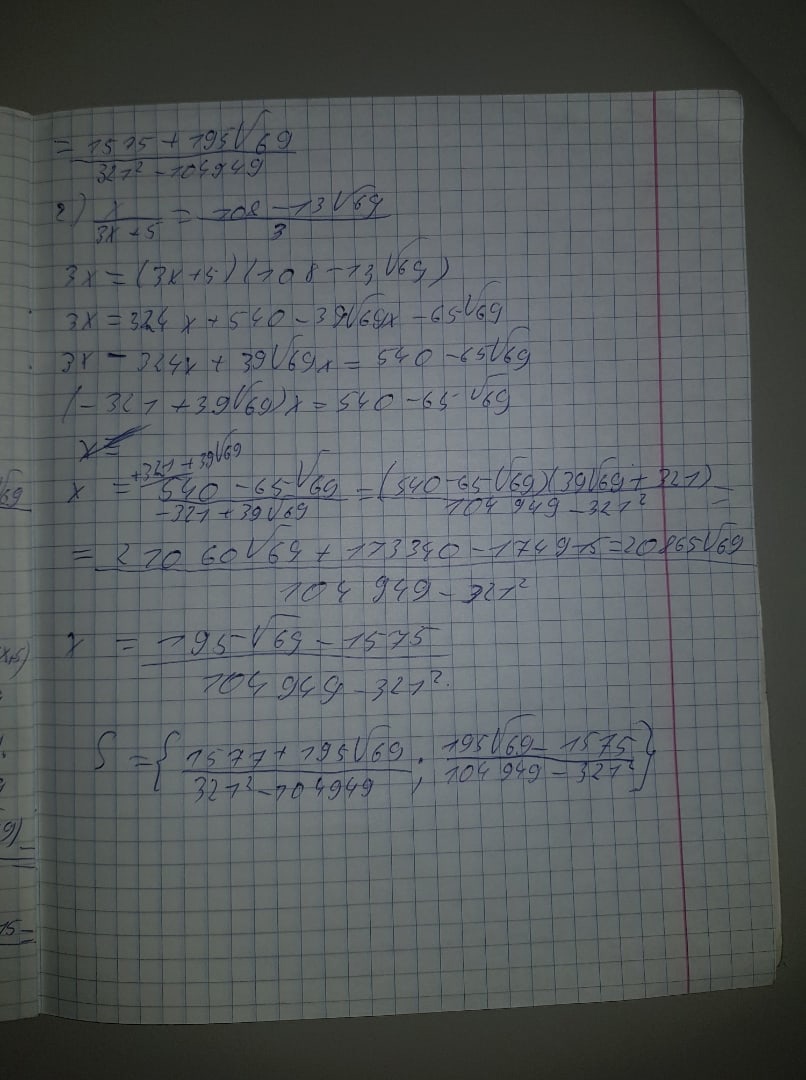 = (1575 + 195√69)/(321² - 104949)
2) x/(3x+5) = (108 - 13√69)/3
3x = (3x+5)(108 - 13√69)
3x = 324x + 540 - 39√69x - 65√69
3x - 324x + 39√69x = 540 - 65√69
(-321 + 39√69)x = 540 - 65√69
x =
+321 + 39√69
x = (540 - 65√69)/(-321 + 39√69) = ((540 - 65√69)(39√69 + 321))/(104 949 - 321²) =
= (210 60√69 + 173340 - 174915 = 20865√69)/(104 949 - 321²)
x = (195√69 - 1575)/(104 949 - 321²)
S = {(1577 + 195√69)/(321² - 104949) ; (195√69 - 1575)/(104 949 - 321²)}